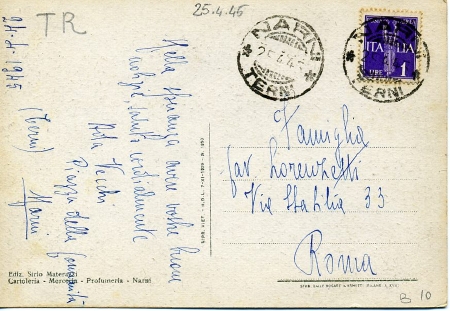 25.4.45
TR
NARNI
25.4.45
TERNI
ITALIA
LIRE 1
ERNI
24-4-1945
(Terni)
Narni
Nella speranza avere vostre buone
notizie, saluto cordialmente
Vecchi
Piazza della
Famiglia
Lorenzetti
Via Stabilia 33
Roma
Ediz. Sirio Materazzi
Cartoleria - Merceria - Profumeria - Narni
B 10